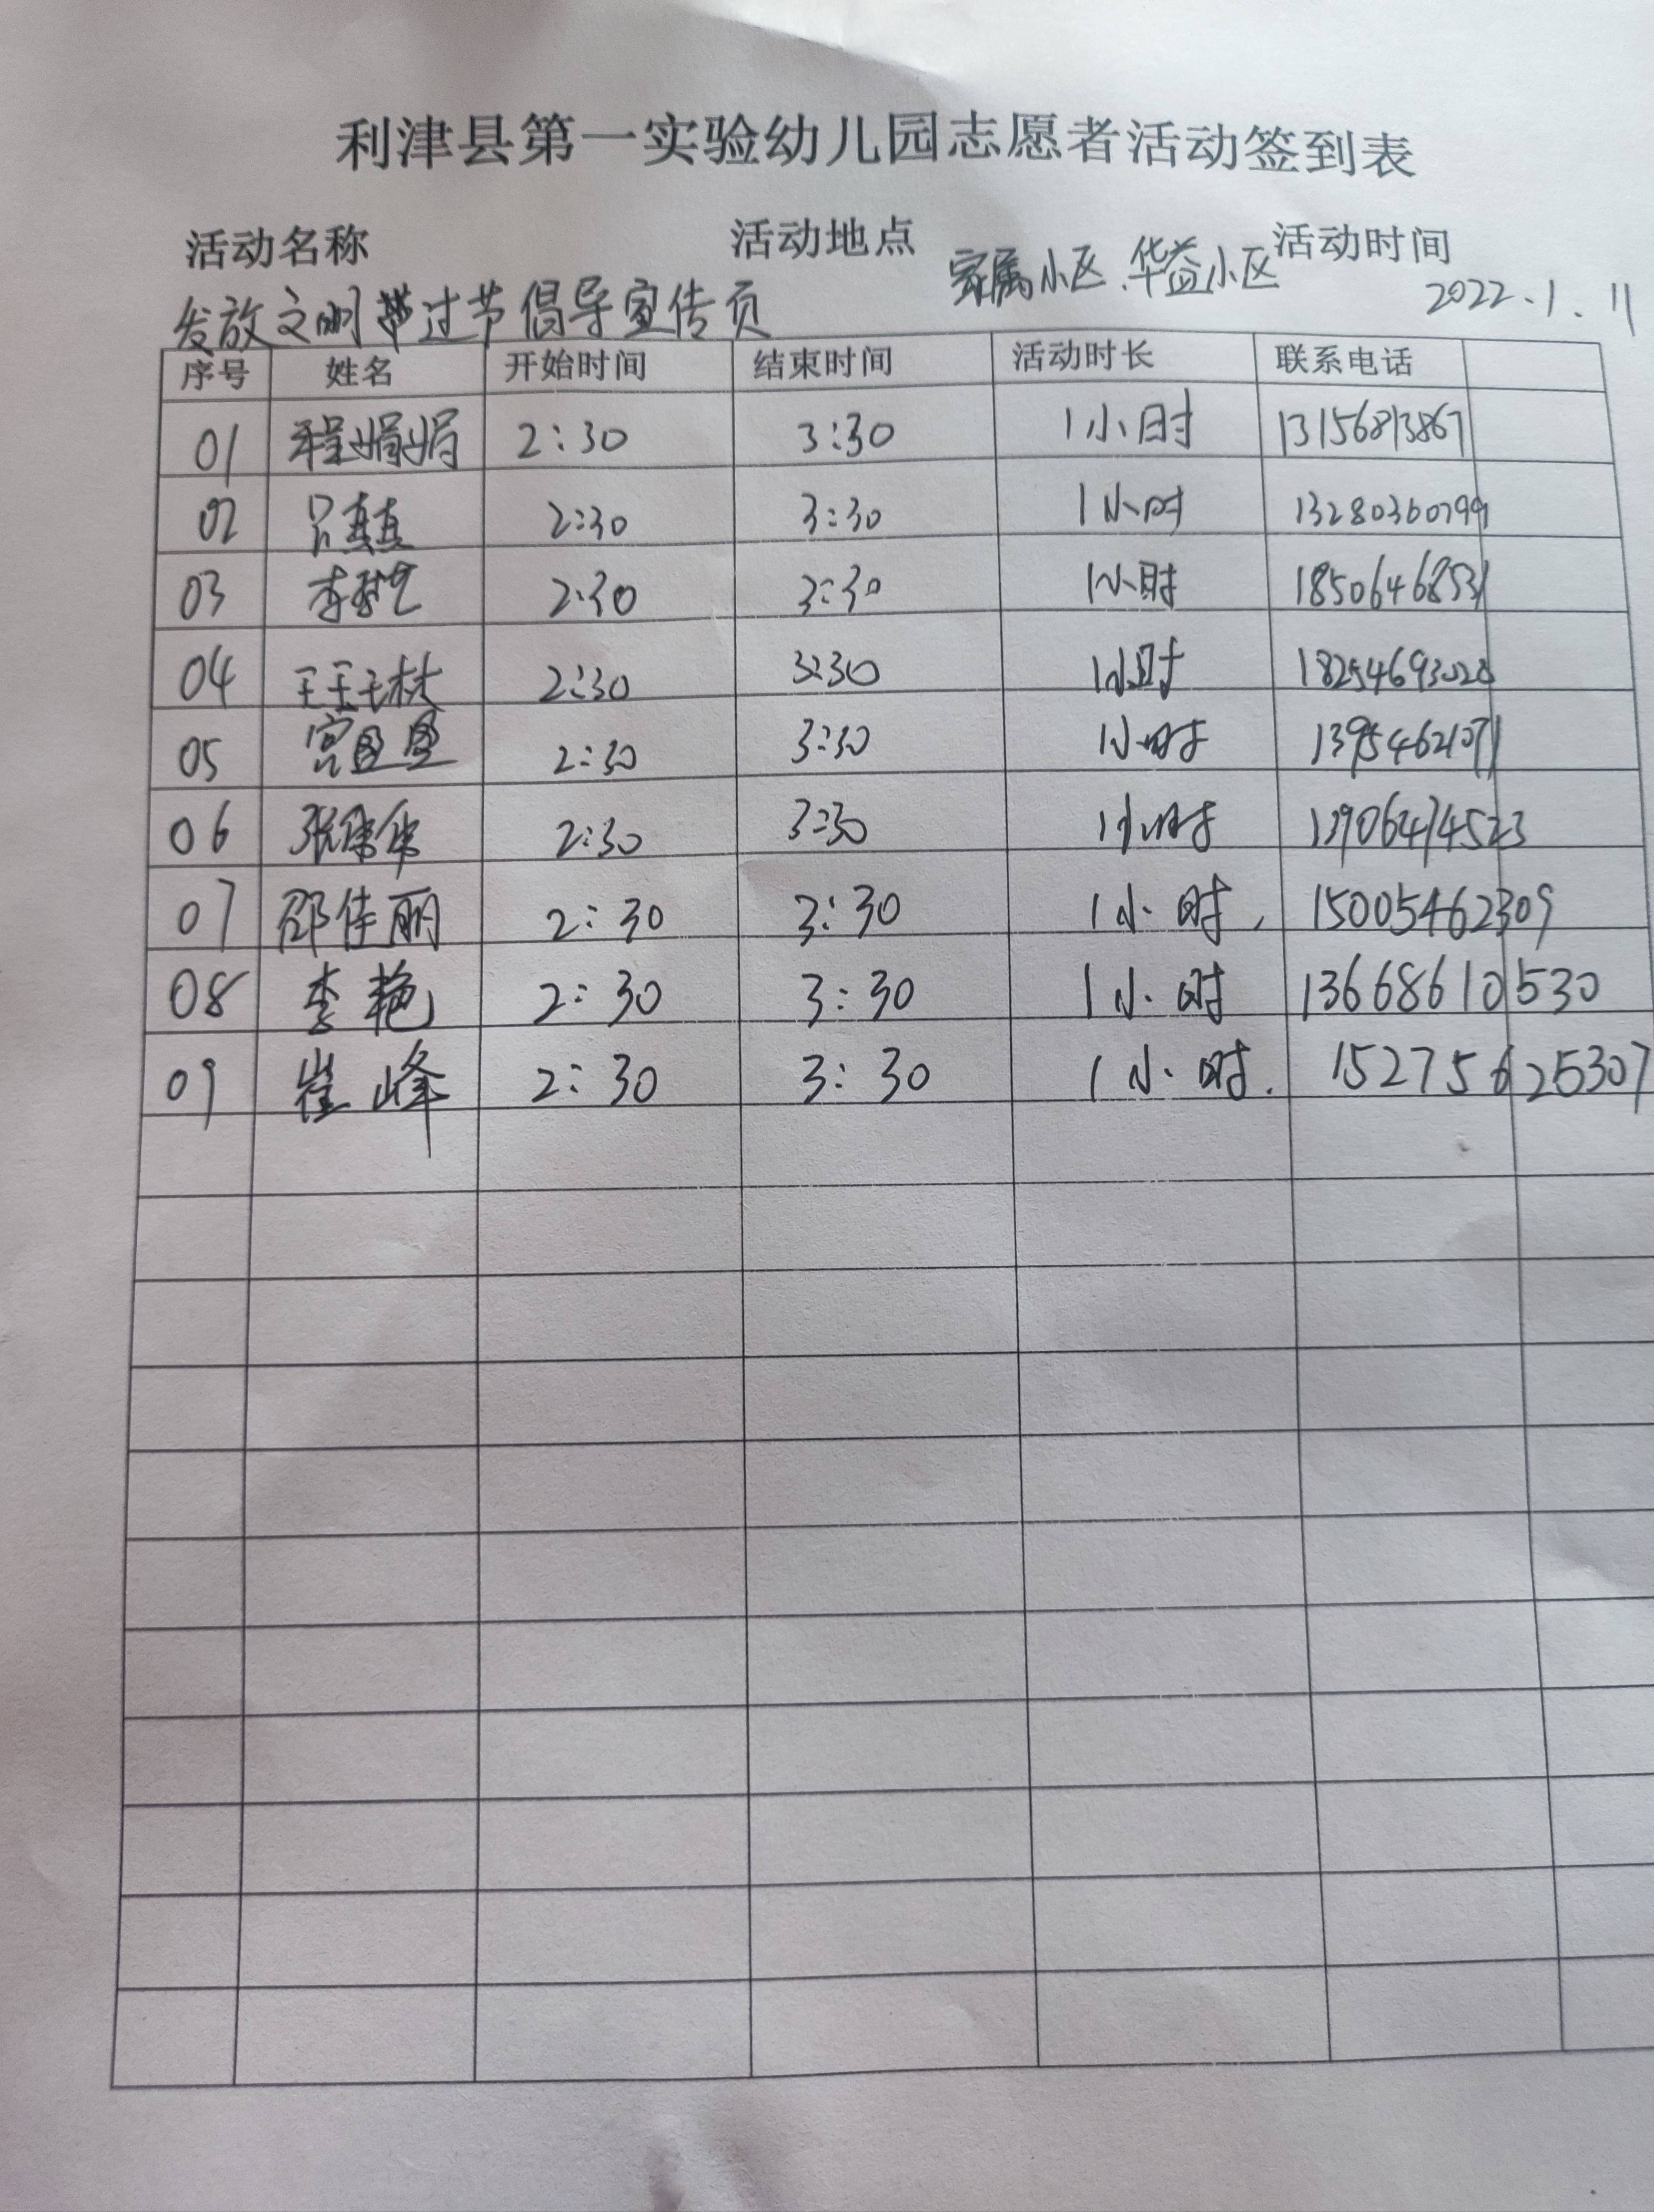 利津县第一实验幼儿园志愿者活动签到表
活动名称 活动地点 活动时间
发放文明过节倡导宣传页 家属小区、华益小区 2022.1.11
序号 姓名 开始时间 结束时间 活动时长 联系电话
01 程娟娟 2:30 3:30 1小时 13156813867
02 吕真真 2:30 3:30 1小时 13280360799
03 李 2:30 3:30 1小时 18506468531
04 王玉 2:30 3:30 1小时 18254693028
05 宫盈盈 2:30 3:30 1小时 13954621071
06 张 2:30 3:30 1小时
07 邵佳丽 2:30 3:30 1小时, 15005462309
08 李艳 2:30 3:30 1小时 13668610530
09 崔峰 2:30 3:30 1小时. 15275625307